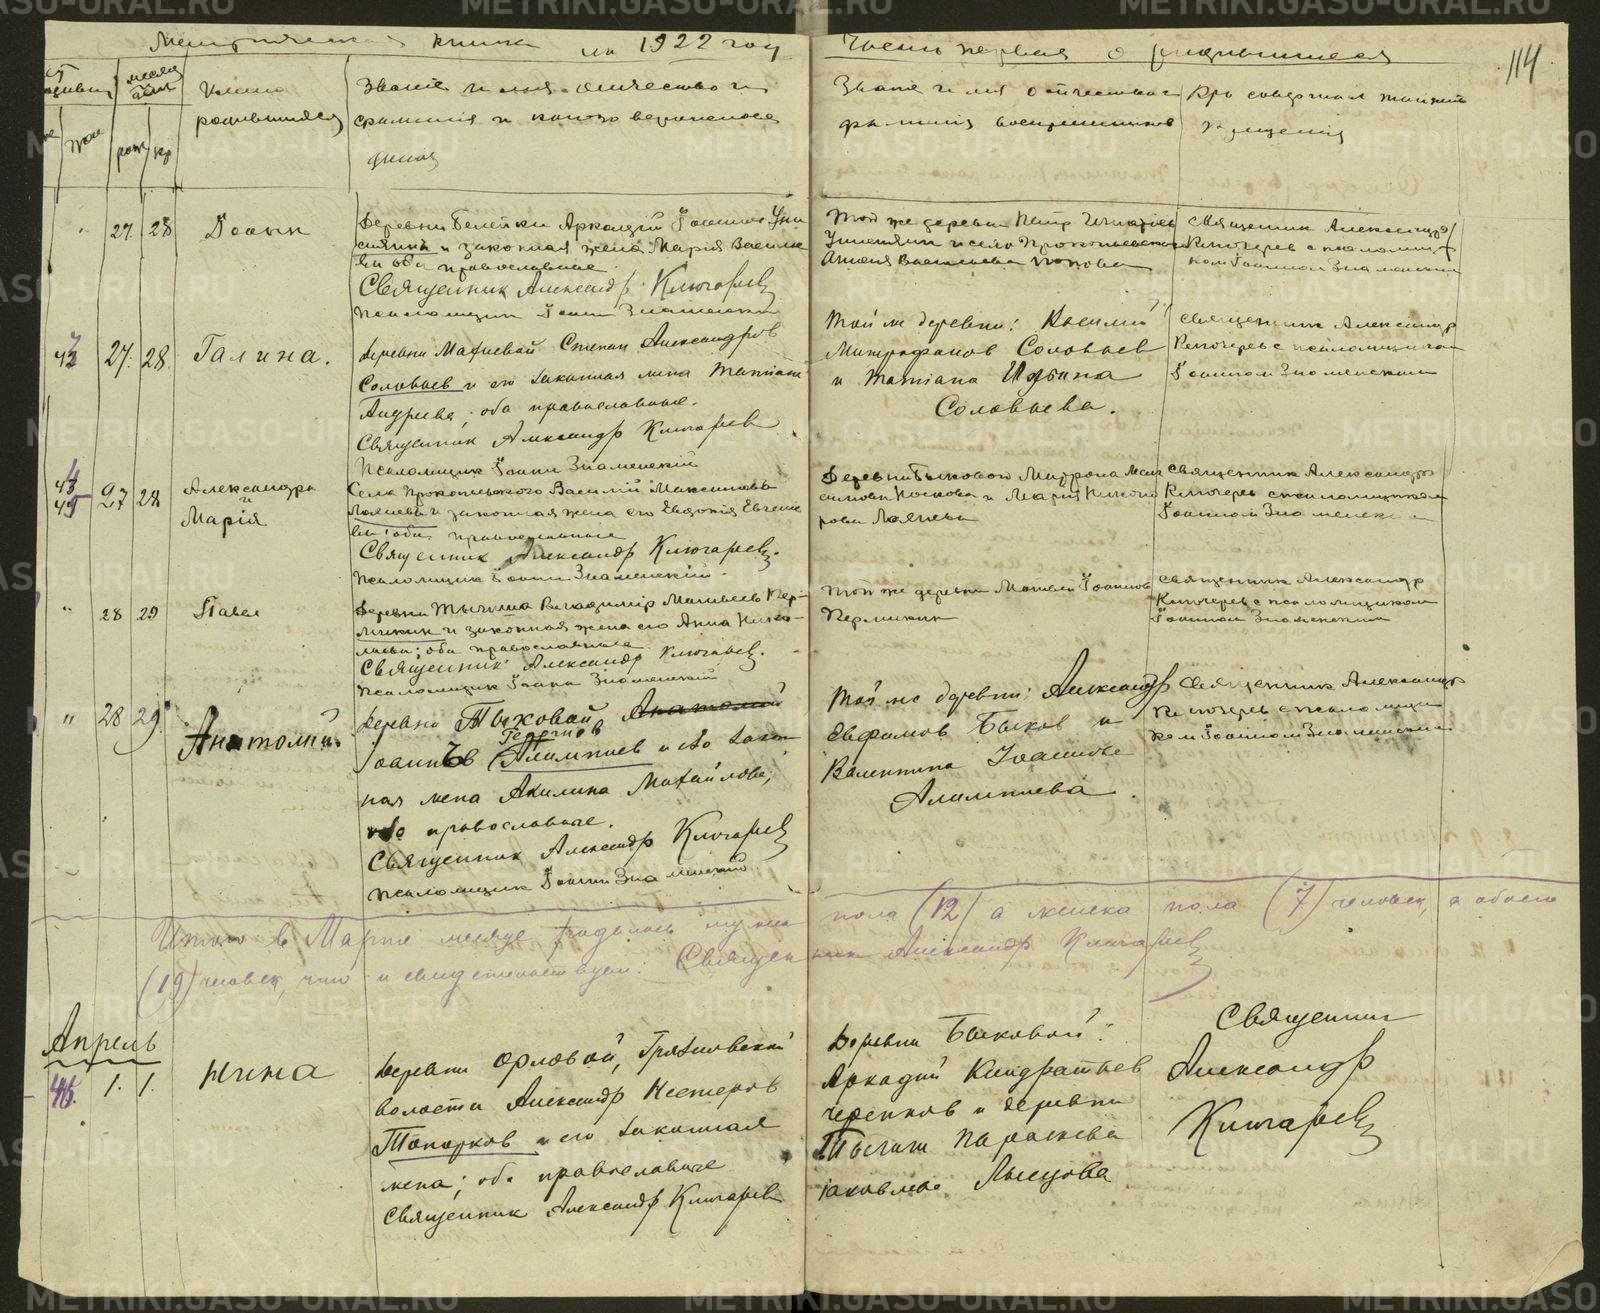 Метрическая книга на 1922 год
Часть первая о родившихся
114
месяц
Имена
родившихся
Званіе и имя отчество и
фамилия и какого вероисповедания
Званіе и имя отчество и
фамилія восприемников
Кто совершал таинство
крещенія
муж
жен
рож
кр
27 28 Іоанн
Деревни Белейки Аркадій Іоаннов
и законная жена Марія Василье
ва оба православные
Священник Александр Ключарев
Псаломщик Іоанн Знаменскій
Той же деревни Петр Игнатьев
и села Прокопьевского
Васильева Попова
Священник Александр
Ключарев с псаломщи
ком Іоанном Знаменским
27. 28 Галина.
Деревни Махневой Степан Александров
Соловьев и его законная жена Татиана
Андреева; оба православные.
Священник Александр Ключарев
Псаломщик Іоанн Знаменскій
Той же деревни: Василий
Митрофанов Соловьев
и Татіана Ильина
Соловьева.
Священник Александр
Ключарев с псаломщиком
Іоанном Знаменским
45 27 28 Александра
и
Марія
Села Прокопьевского Василій Максимов
и законная жена его Евдокія Евгенье
ва оба православные
Священник Александр Ключарев.
Псаломщик Іоанн Знаменскій.
Деревни Быковой Матрона Мак
симова Носкова и Марія Никано
рова
Священник Александр
Ключарев с псаломщиком
Іоанном Знаменским
" 28 29 Павел
Деревни Тычкина Владимір Матвеев Пер-
микин и законная жена его Анна Нико-
лаева; оба православные
Священник Александр Ключарев.
Псаломщик Іоанн Знаменскій
Той же деревни Матвей Іоаннов
Пермикин
Священник Александр
Ключарев с псаломщиком
Іоанном Знаменским
" 28 29 Анатолий.
Деревни Быковой Анатолий
Георгиев
Іоаннов Алимпиев и его закон
ная жена Акилина Михайлова;
оба православные.
Священник Александр Ключарев
Псаломщик Іоанн Знаменский
Той же деревни: Александр
Евфимов Быков и
Валентина Іоаннова
Алимпиева.
Священник Александр
Ключарев с псаломщи
ком Іоанном Знаменским
Итого в Марте месяце родилось мужска пола (12) а женска пола (7) человек, а обоего
(19) человек, что и свидетельствуем: Священник Александр Ключарев
Апрель
46. 1. 1. Нина
Деревни Орловой, Грязновской
волости Александр Нестеров
Топорков и его законная
жена; оба православные
Священник Александр Ключарев
Деревни Быковой:
Аркадий Кондратьев
Черепков и деревни
Параскева
Іаковлева Лысцова
Священник
Александр
Ключарев